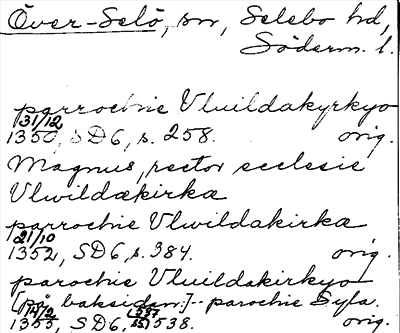 Över-Selö, sn, Selebo hd,
Söderm. l.
parrochie Vluildakyrkyo
31/12
1350, SD6, s. 258. orig.
Magnus, rector ecclesie
Vlwildækirkæ
parrochie Vlwildakirka
21/10
1352, SD6, s. 384. orig.
parochie Vluildakirkyo
[på baksidan:]-- parochie Syla.
1355, SD6, 538. orig.